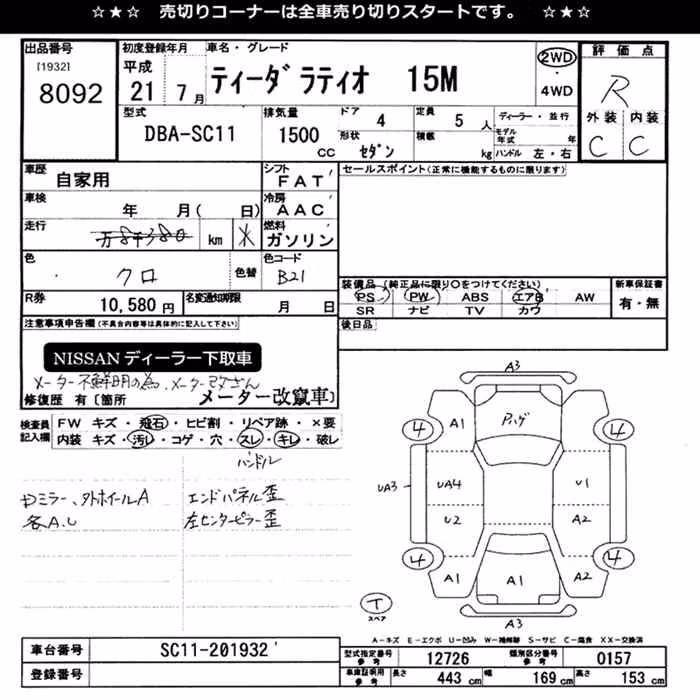 ☆★☆ 売切りコーナーは全車売り切りスタートです。 ☆★☆
出品番号 初度登録年月 車名・グレード 評価点
[1932] 平成 2WD
8092 21 7月 ティーダ ラティオ 15M ・ R
4WD
型式 排気量 ドア 4 定員 5 人 ディーラー・並行 外装 内装
DBA-SC11 1500 CC 形状 セダン 積載 kg モデル年式 年 C C
ハンドル 左・右
車歴 自家用 シフト FAT セールスポイント(正常に機能するものに限ります)
車検 年 月( 日) 冷房 AAC
走行 km 燃料 ガソリン
色 クロ 色替 色コード B21
装備品(純正品に限り○をつけてください) 新車保証書
PS PW ABS エアB AW 有・無
SR ナビ TV カワ
R券 10,580円 名変通知期限 月 日
後日品
注意事項申告欄(不具合内容等は具体的に記入して下さい)
NISSANディーラー下取車
メーター不鮮明の為、メーター改ざん
修復歴 有〔箇所 メーター改竄車〕
検査員記入欄 FW キズ・飛石・ヒビ割・リペア跡・×要
内装 キズ・汚レ・コゲ・穴・スレ・キレ・破レ
ハンドル
ミラー、タトホイールA エンドパネル歪
各A.U 左センターピラー歪
A3
4 A1 アハゲ 4
UA3 UA4 U1
U2 A2
4 A1 A1 A2 4
T
スペア
A3
A-キズ E-エクボ U-凹み W-補修跡 S-サビ C-腐食 XX-交換済
車台番号 SC11-201932
登録番号
型式指定番号 参考 12726 類別区分番号 参考 0157
車庫証明用 参考 長さ 443 cm 幅 169 cm 高さ 153 cm